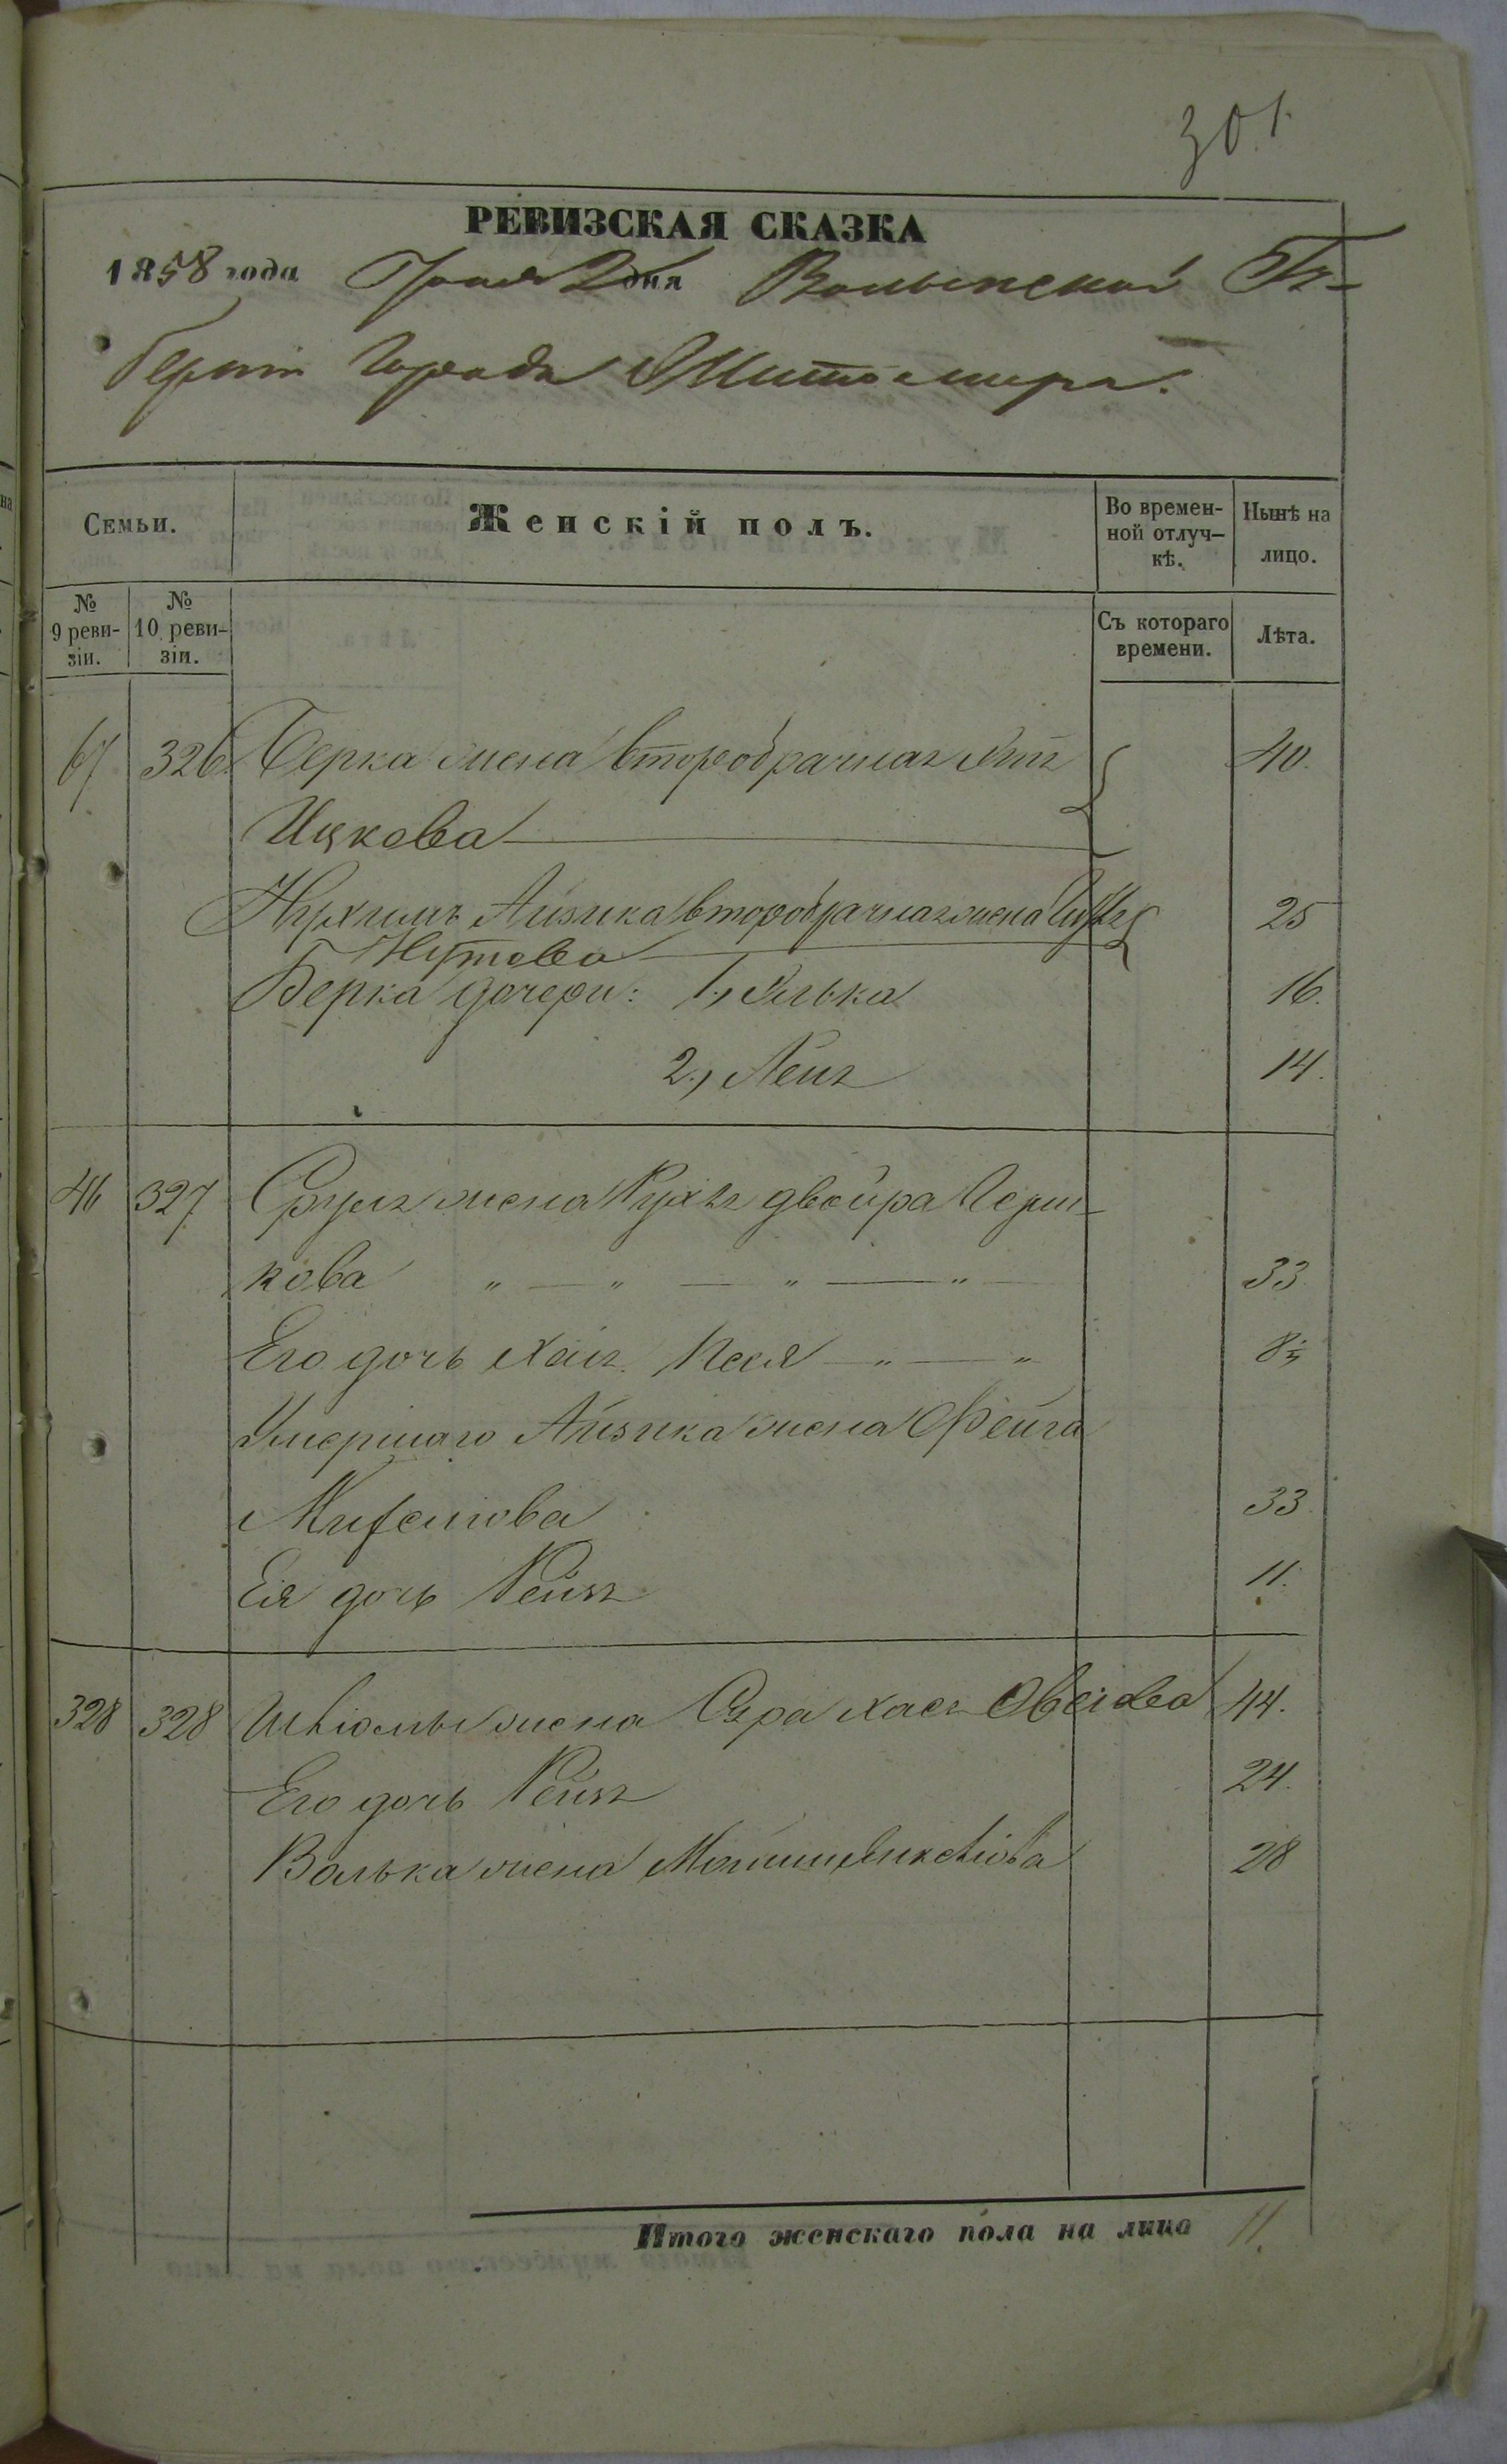 301.
РЕВИЗСКАЯ СКАЗКА
1858 года Июня 2 дня Волынской Гу-
берніи Города Житомира.
Семьи.
Женскій полъ.
Во времен-
ной отлуч-
кѣ.
Нынѣ на
лицо.
№
9 реви-
зіи.
№
10 реви-
зіи.
Съ котораго
времени.
Лѣта.
67 326 Берка жена второбрачная 40.
Ицкова
Айзика второбрачная жена 25
Нутова
Берка дочери: 1., Элька 16.
2., Лея 14.
46 327 Сруля жена Рухля двойра Герш-
кова " — " — " — " — 33
Его дочь Хая Песя — " — " 8½
Умершаго Айзика жена Фейга
33.
Ея дочь Рейзя 11.
328 328 жена Сура Хася Овсіева 44.
Его дочь Рейзя 24.
Волька жена 28
Итого женскаго пола на лицо 11.